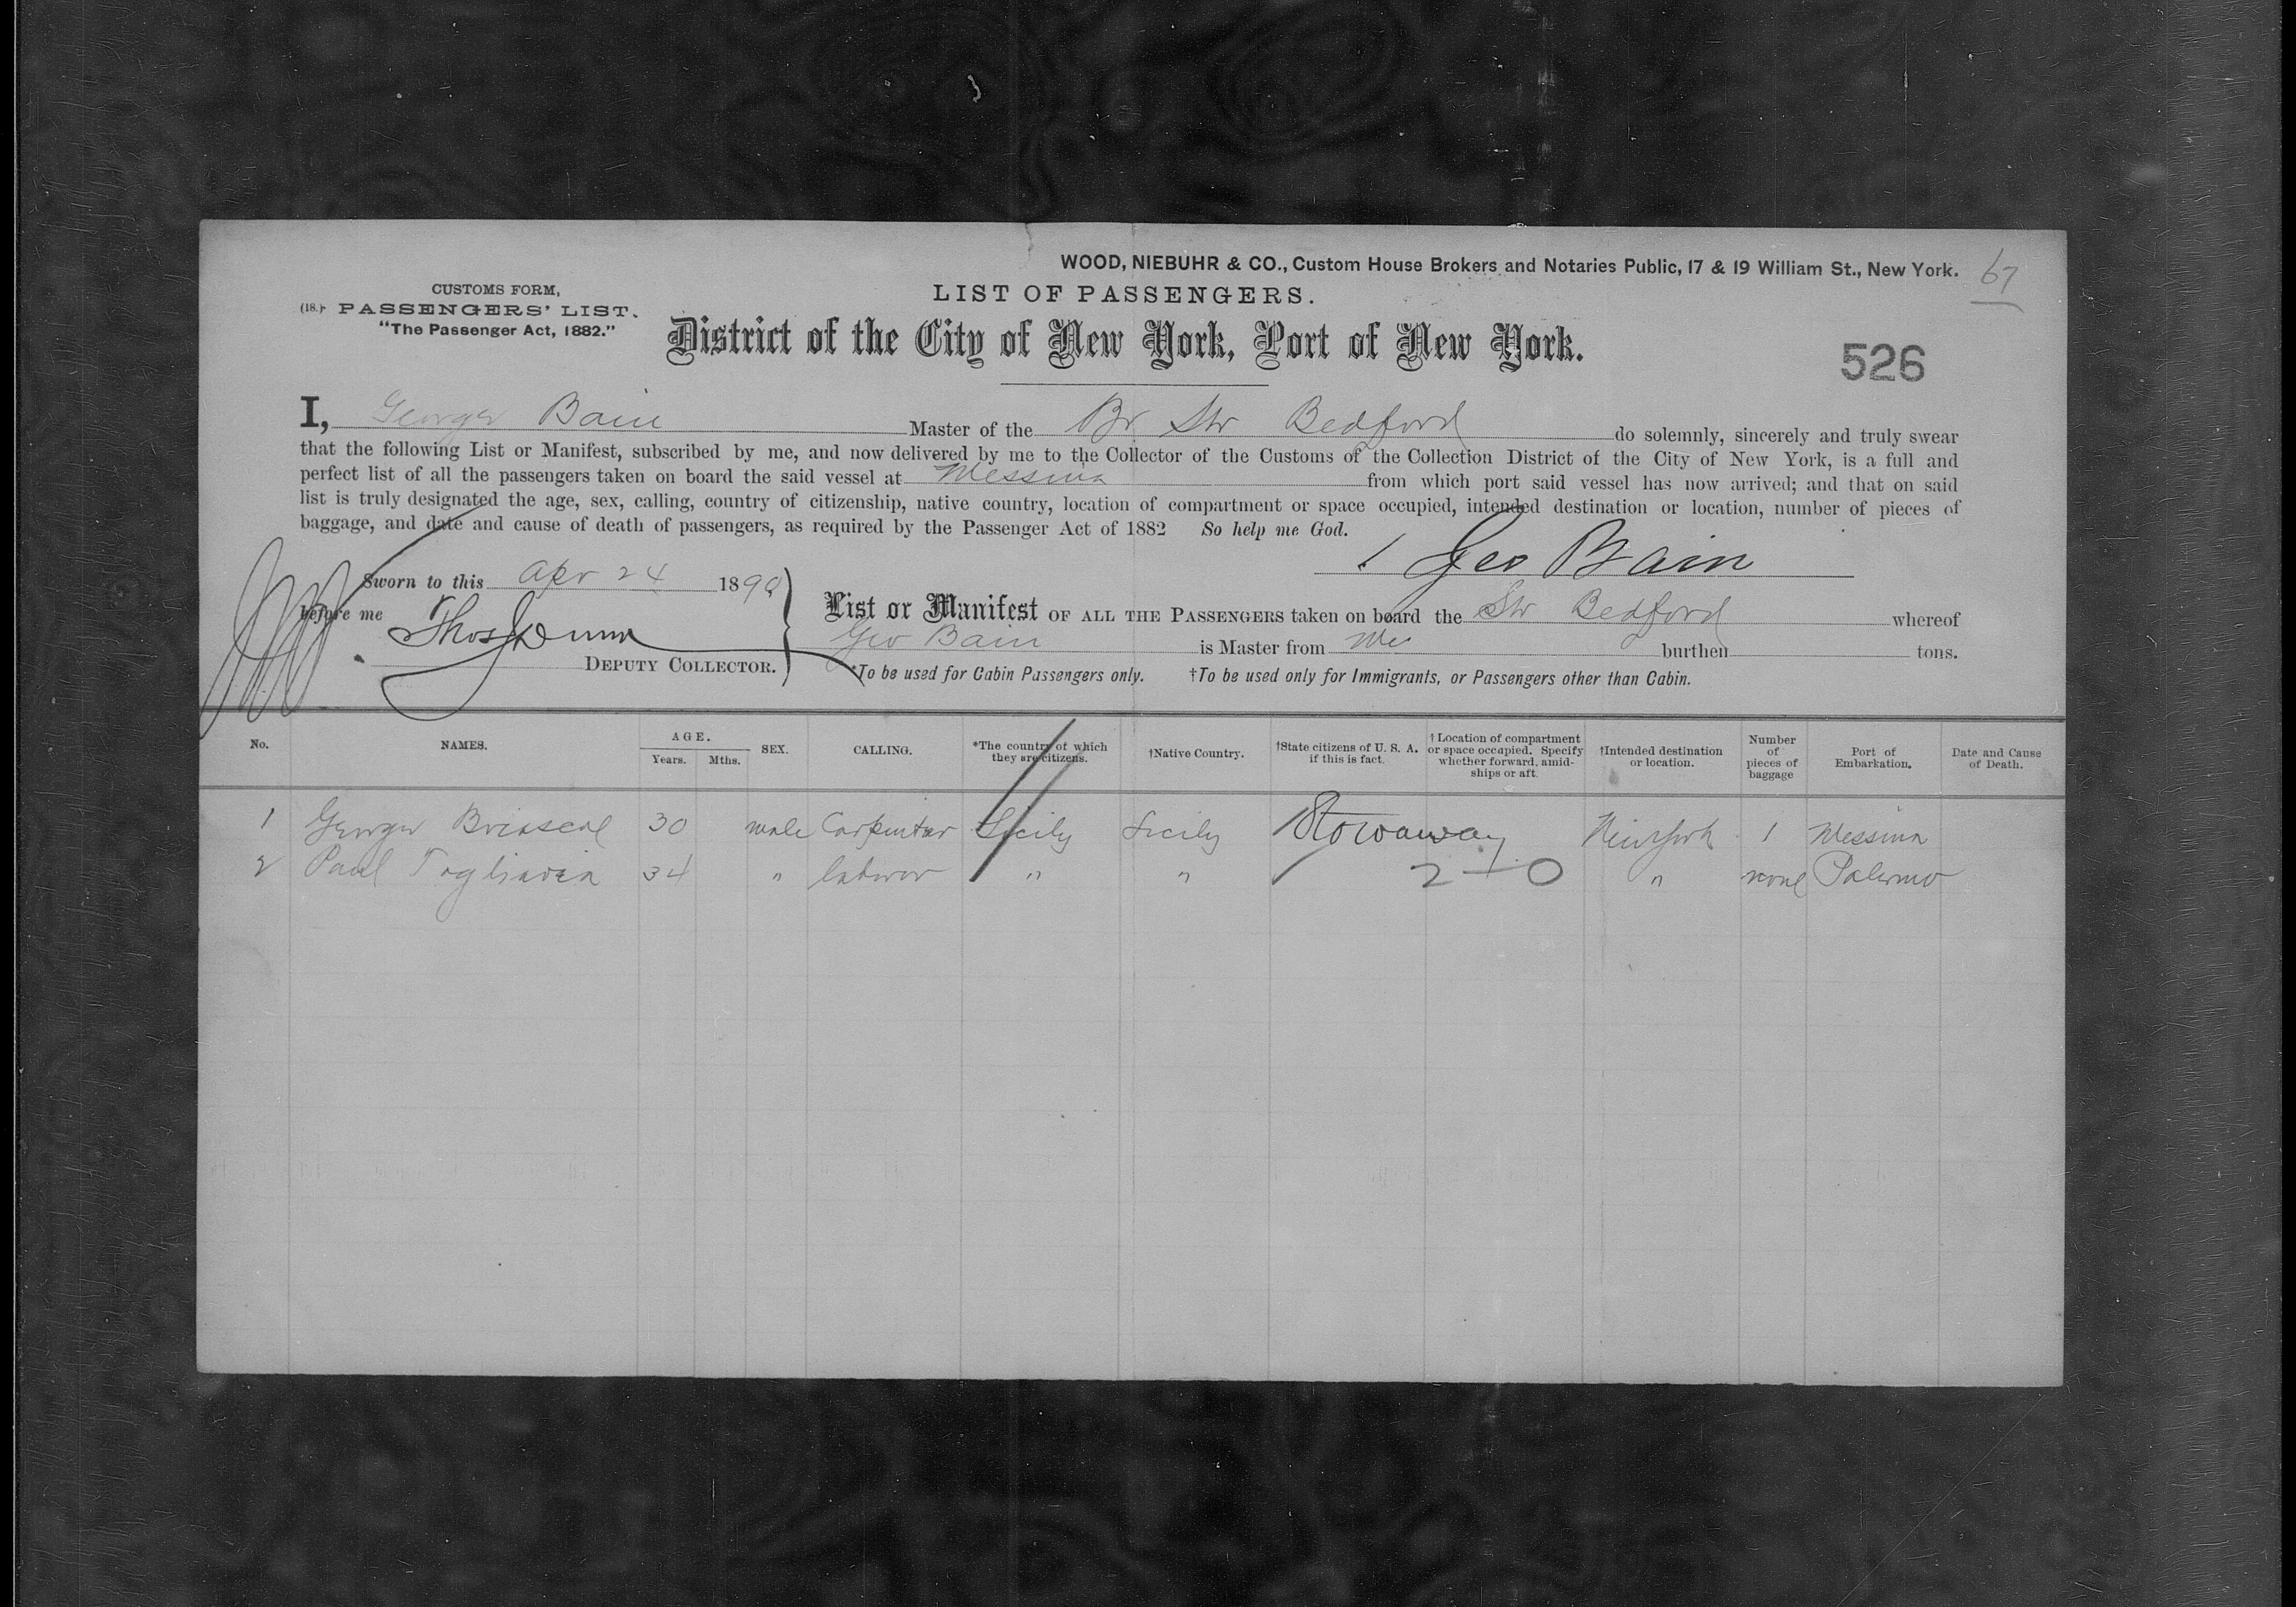 WOOD, NIEBUHR & CO., Custom House Brokers and Notaries Public, 17 & 19 William St., New York. 67
CUSTOMS FORM,
(18.) PASSENGERS' LIST.
"The Passenger Act, 1882."
LIST OF PASSENGERS.
District of the City of New York, Port of New York.
526
I, George Bain Master of the Br Str Bedford do solemnly, sincerely and truly swear
that the following List or Manifest, subscribed by me, and now delivered by me to the Collector of the Customs of the Collection District of the City of New York, is a full and
perfect list of all the passengers taken on board the said vessel at Messina from which port said vessel has now arrived; and that on said
list is truly designated the age, sex, calling, country of citizenship, native country, location of compartment or space occupied, intended destination or location, number of pieces of
baggage, and date and cause of death of passengers, as required by the Passenger Act of 1882 So help me God.
Geo Bain
Sworn to this Apr 24 1890
before me Thos J Dunn
DEPUTY COLLECTOR.
List or Manifest OF ALL THE PASSENGERS taken on board the Str Bedford whereof
Geo Bain is Master from Me burthen tons.
*To be used for Cabin Passengers only. †To be used only for Immigrants, or Passengers other than Cabin.
No. NAMES. AGE. Years. Mths. SEX. CALLING. *The country of which they are citizens. †Native Country. †State citizens of U. S. A. if this is fact. †Location of compartment or space occupied. Specify whether forward, amidships or aft. †Intended destination or location. Number of pieces of baggage Port of Embarkation. Date and Cause of Death.
1 George 30 male Carpenter Sicily Sicily Stowaway New York 1 Messina
2 Paul Tagliavia 34 " laborer " " 2-0 " none Palermo